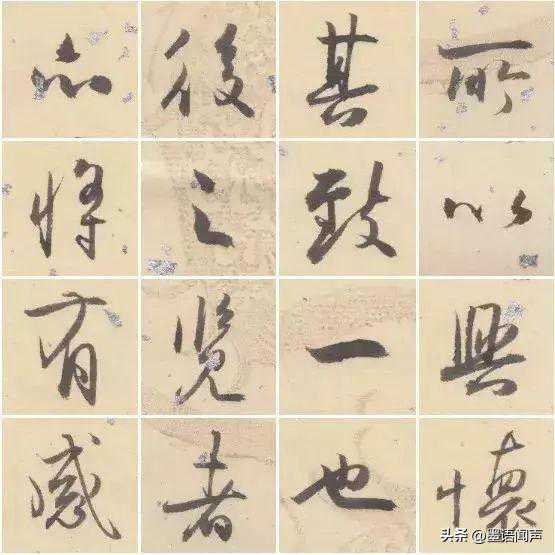 所以興懷
其致一也
後之覽者
亦將有感
头条 @墨语闻声